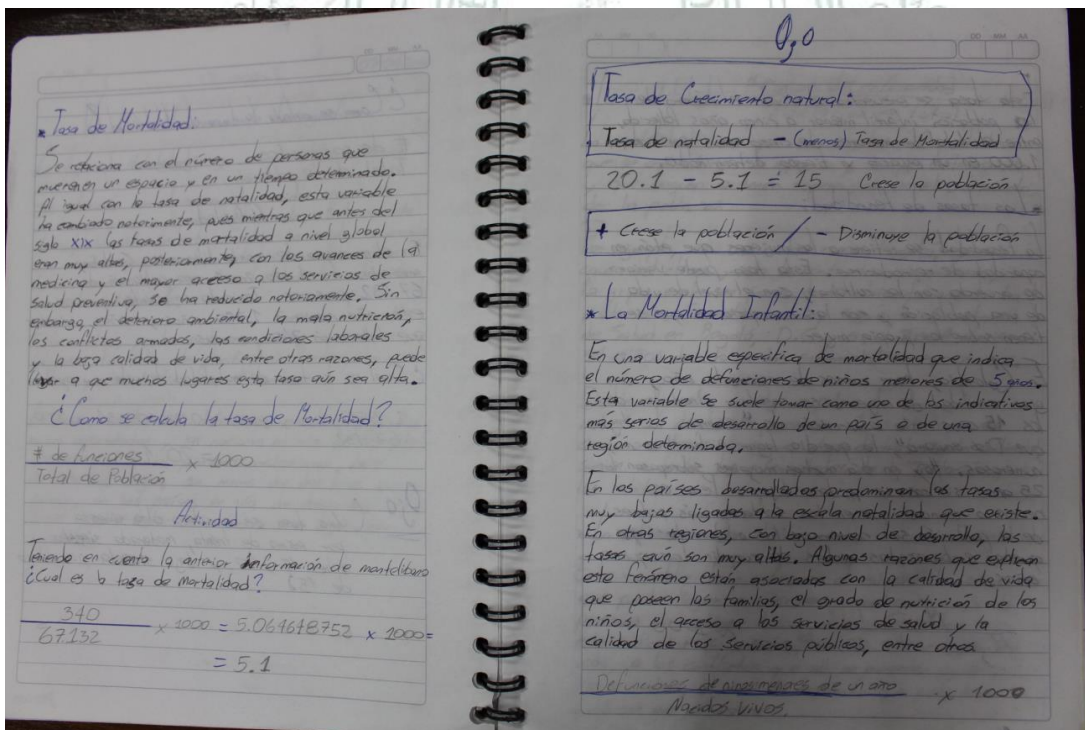 * Tasa de Mortalidad:
Se relaciona con el número de personas que
mueren en un espacio y en un tiempo determinado.
Al igual con la tasa de natalidad, esta variable
ha cambiado notoriamente, pues mientras que antes del
siglo XIX las tasas de mortalidad a nivel global
eran muy altas, posteriormente, con los avances de la
medicina y el mayor acceso a los servicios de
salud preventiva, se ha reducido notoriamente. Sin
embargo, el deterioro ambiental, la mala nutrición,
los conflictos armados, las condiciones laborales
y la baja calidad de vida, entre otras razones, puede
llegar a que muchos lugares esta tasa aún sea alta.
¿Como se calcula la tasa de Mortalidad?
# de funciones
x 1000
Total de Población
Actividad
Teniendo en cuenta la anterior información de montelibano
¿Cual es la taza de mortalidad?
340
67.132
x 1000 = 5.064648752 x 1000=
= 5.1
0,0
Tasa de Crecimiento natural:
Tasa de natalidad - (menos) Tasa de Mortalidad
20.1 - 5.1 = 15 Crese la población
+ Crese la población / - Disminuye la población
* La Mortalidad Infantil:
En una variable especifica de mortalidad que indica
el número de defunciones de niños menores de 5 años.
Esta variable se suele tomar como uno de los indicativos
más serios de desarrollo de un país o de una
región determinada.
En los países desarrollados predominan las tasas
muy bajas ligadas a la natalidad que existe.
En otras regiones, con bajo nivel de desarrollo, las
tasas aún son muy altas. Algunas razones que explican
este fenómeno están asociadas con la calidad de vida
que poseen las familias, el grado de nutrición de los
niños, el acceso a los servicios de salud y la
calidad de los servicios públicos, entre otros.
Defunciones de niños menores de un año
x 1000
Nacidos Vivos.